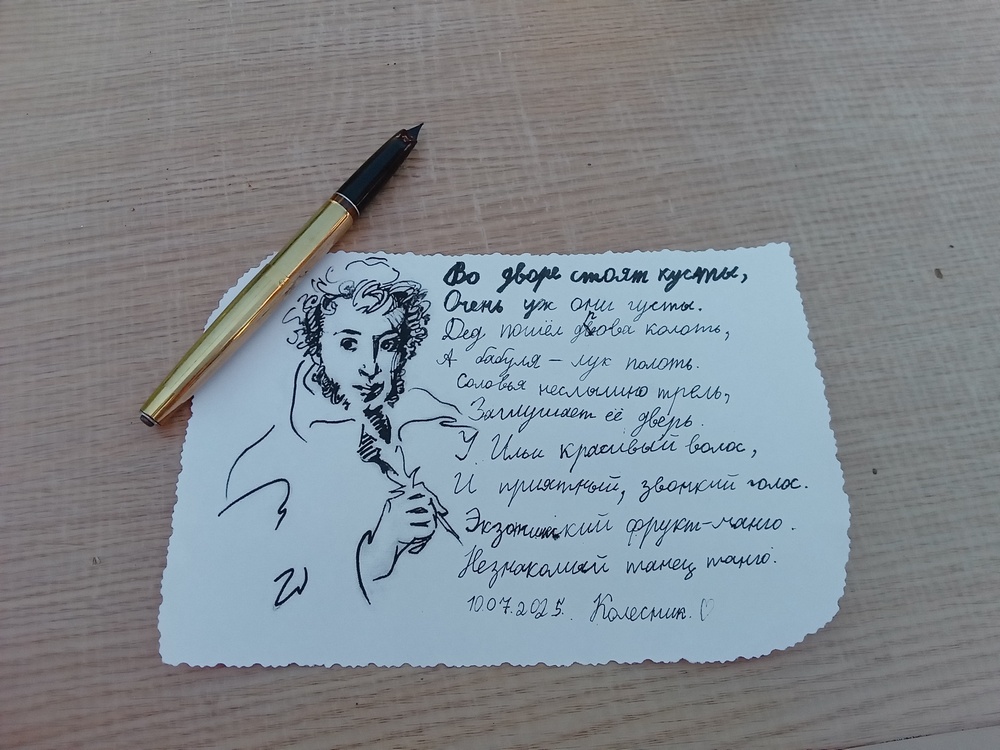 Во дворе стоят кусты,
Очень уж они густы.
Дед пошёл дрова колоть,
А бабуля - лук полоть.
Соловья неслышно трель,
Заглушает её дверь.
У Ильи красивый волос,
И приятный, звонкий голос.
Экзотический фрукт-манго.
Незнакомый танец танго.
10.07.2025. Колесник. ♡